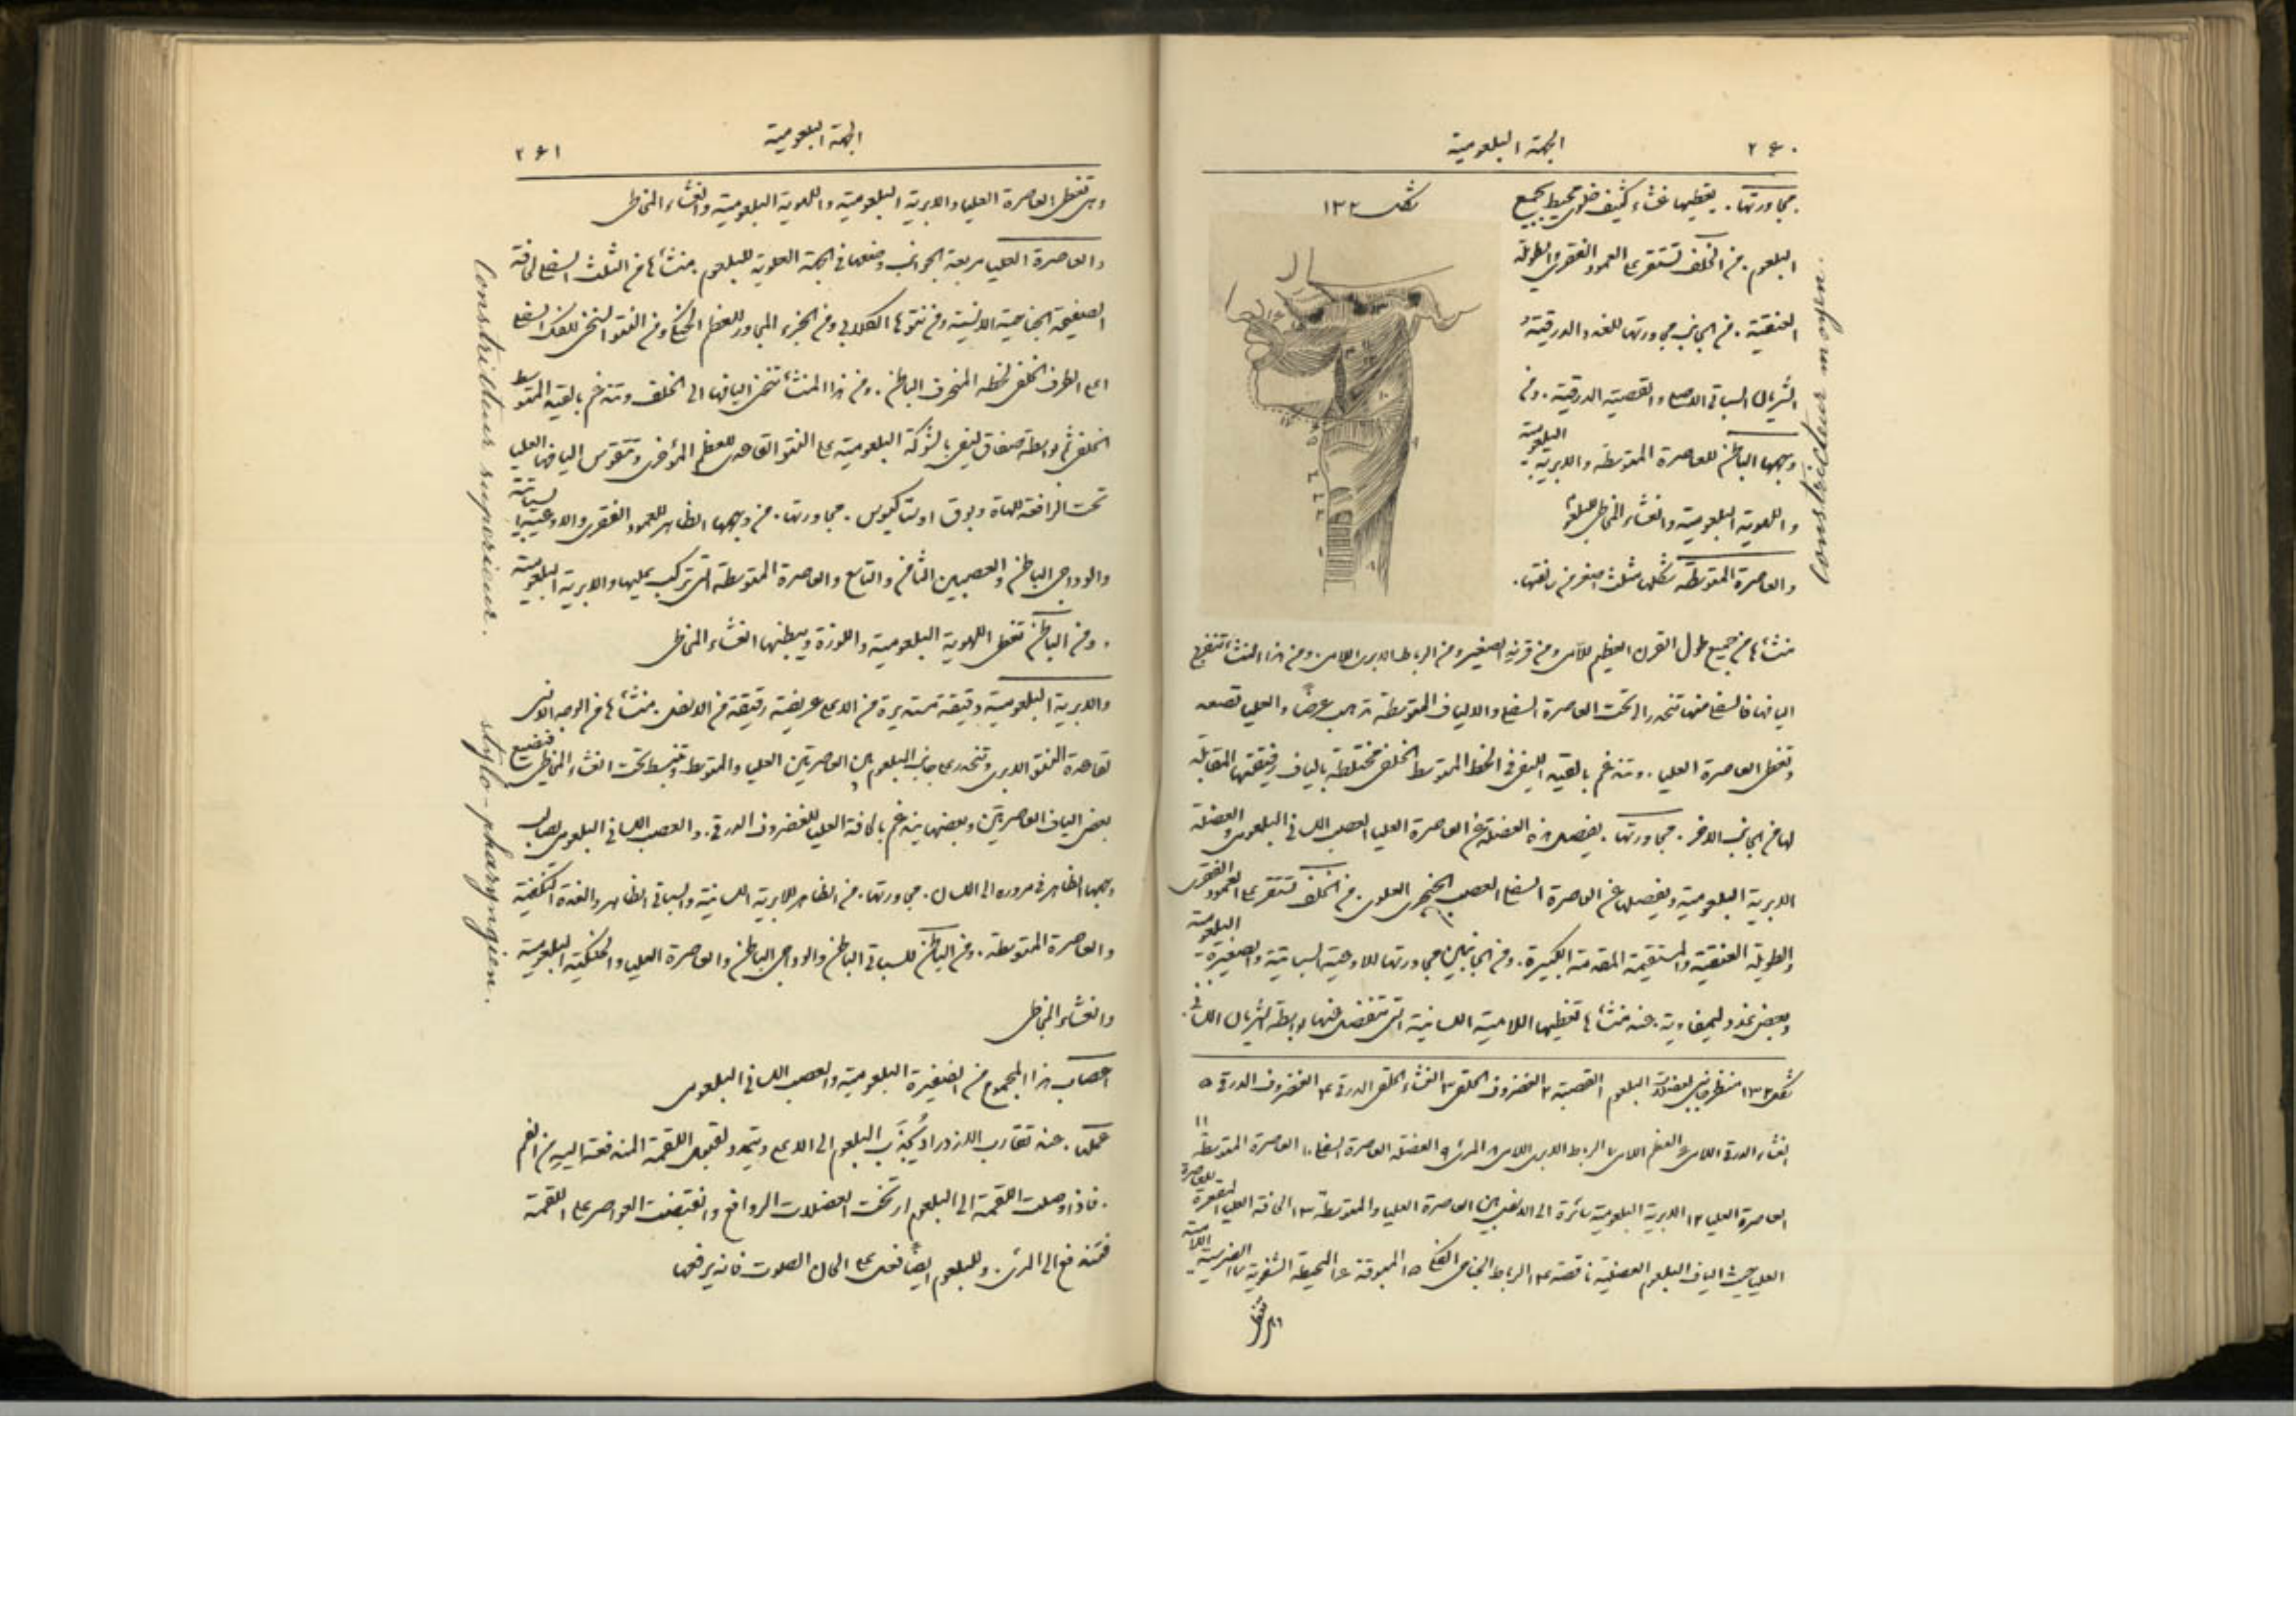 ٢٤٠
الجهة البلعومية
شكل ١٣٢
مجاورتها. يغطيها غشاء كثيف خلوي محيط بجميع
البلعوم. من الخلف تستقر على العمود الفقري والطويلة
العنقية. من الجانب مجاورتها للغدد الدرقية و
الشريان السباتي الاصلي والقصية الدرقية. ومن
وجهها الباطن للعاصرة المتوسطة والابرية البلعومية
واللهوية البلعومية والغشاء المخاطي للبلعوم
والعاصرة المتوسطة شكلها مثلث اصغر من رفقتها.
Constricteur moyen.
منشأها من جميع طول القرن العظيم للامي ومن قرنه الصغير ومن الرباط الابري اللامي. ومن هذا المنشأ تنفرج
اليافها فالسفلى منها تنحدر الى تحت العاصرة السفلى والالياف المتوسطة تذهب عرضاً والعليا تصعد
وتغطي العاصرة العليا. وتندغم بالقية الليفي في الخط المتوسط الخلفي مختلطة بالياف رفيقتها المقابلة
لها من الجانب الاخر. مجاورتها. يفصل هذه العضلة عن العاصرة العليا العصب اللساني البلعومي والعضلة
الابرية البلعومية ويفصلها عن العاصرة السفلى العصب الحنجري العلوي. من الخلف تستقر على العمود الفقري
والطويلة العنقية والمستقيمة المقدمة الكبيرة. ومن الجانبين مجاورتها للاوعية السباتية والضفيرة البلعومية
وبعض غدد ليمفاوية. عند منشأها تغطيها اللامية اللسانية التي تنفصل عنها بواسطة الشريان اللساني.
شكل ١٣٢ منظر جانبي لعضلات البلعوم ١ القصبة ٢ الغضروف الحلقي ٣ الغشاء الحلقي الدرقي ٤ الغضروف الدرقي ٥
الغشاء الدرقي اللامي ٦ العظم اللامي ٧ الرباط الابري اللامي ٨ المرئ ٩ العضلة العاصرة السفلى ١٠ العاصرة المتوسطة ١١
العاصرة العليا ١٢ الابرية البلعومية سائرة الى الاسفل بين العاصرة العليا والمتوسطة ١٣ الحافة العليا المقعرة للعاصرة
العليا حيث الياف البلعوم العضلية ناقصة ١٤ الرباط الجناحي الفكي ١٥ المبوقة ١٦ المحيطة الشفوية ١٧ الضرسية اللامية
٢٤١
الجهة البلعومية
وهي تغطي العاصرة العليا والابرية البلعومية واللهوية البلعومية والغشاء المخاطي
والعاصرة العليا مربعة الجوانب وضعها في الجهة العلوية للبلعوم. منشأها من الثلث السفلي لحافة
الصفيحة الجناحية الانسية ومن نتوها الكلابي ومن الجزء المجاور للعظم الحنكي ومن النتو السنخي للفك السفلي
اعلى الطرف الخلفي لخطه المنحرف الباطن. ومن هذا المنشأ تنحني اليافها الى الخلف وتندغم بالقية المتوسط
الخلفي ثم بواسطة صفاق ليفي بالشوكة البلعومية على النتو القاعدي للعظم المؤخري وتتقوس اليافها العليا
تحت الرافعة للهاة وبوق اوستاكيوس. مجاورتها. من وجهها الظاهر للعمود الفقري والاوعية السباتية
والوداجي الباطن والعصبين الثامن والتاسع والعاصرة المتوسطة التي تركب عليها والابرية البلعومية
. ومن الباطن تغطي اللهوية البلعومية واللوزة ويبطنها الغشاء المخاطي
Constricteur superieur.
والابرية البلعومية دقيقة مستديرة من الاعلى عريضة رقيقة من الاسفل. منشأها من الوجه الانسي
لقاعدة النتو الابري وتنحدر على جانب البلعوم بين العاصرتين العليا والمتوسطة وتنبسط تحت الغشاء المخاطي فتضيع
بعض الياف العاصرتين وبعضها يندغم بالحافة العليا للغضروف الدرقي. والعصب اللساني البلعومي يصالب
وجهها الظاهر في مروره الى اللسان. مجاورتها. من الظاهر للابرية اللسانية والسباتي الظاهر والغدة النكفية
والعاصرة المتوسطة. ومن الباطن للسباتي الباطن والوداجي الباطن والعاصرة العليا والحنكية البلعومية
والغشاء المخاطي
stylo-pharyngien.
اعصاب هذا المجموع من الضفيرة البلعومية والعصب اللساني البلعومي
عملها. عند تقارب الازدراد يُجذَب البلعوم الى الاعلى ويتمدد لقبول اللقمة المندفعة اليه من الفم
. فاذا وصلت اللقمة الى البلعوم ارتخت العضلات الروافع وانقبضت العواصر على اللقمة
فتندفع الى المرئ. وللبلعوم ايضاً فعل على احوال الصوت فانه يرفعها